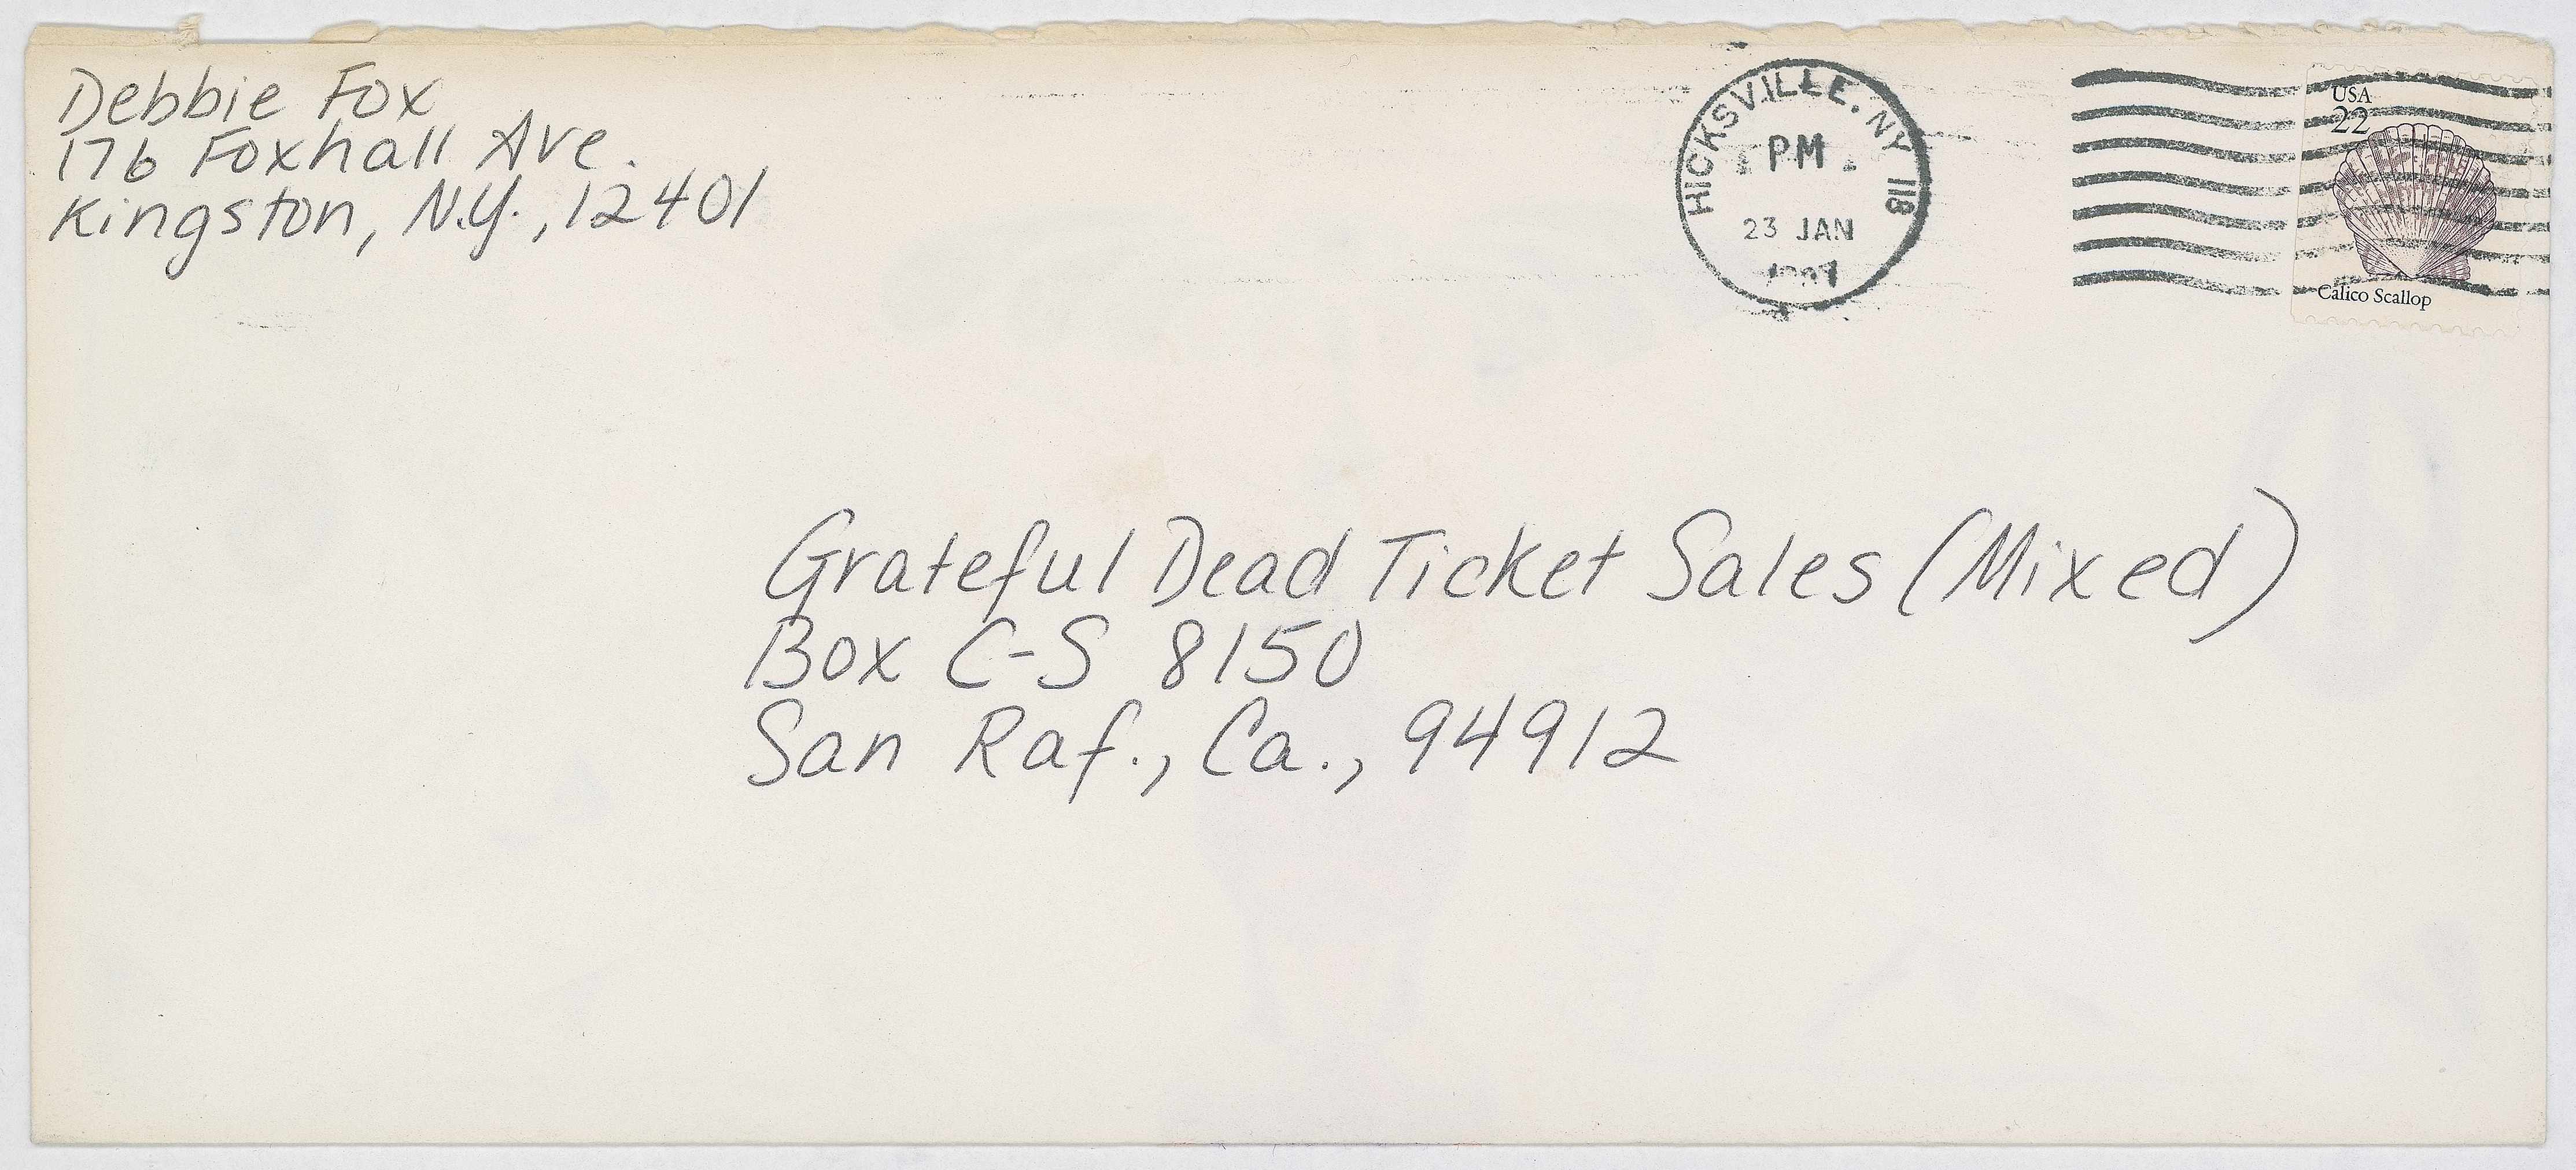 Debbie Fox
176 Foxhall Ave.
Kingston, N.Y., 12401
HICKSVILLE, NY 118
PM
23 JAN
USA
22
Calico Scallop
Grateful Dead Ticket Sales (Mixed)
Box C-S 8150
San Raf., Ca., 94912